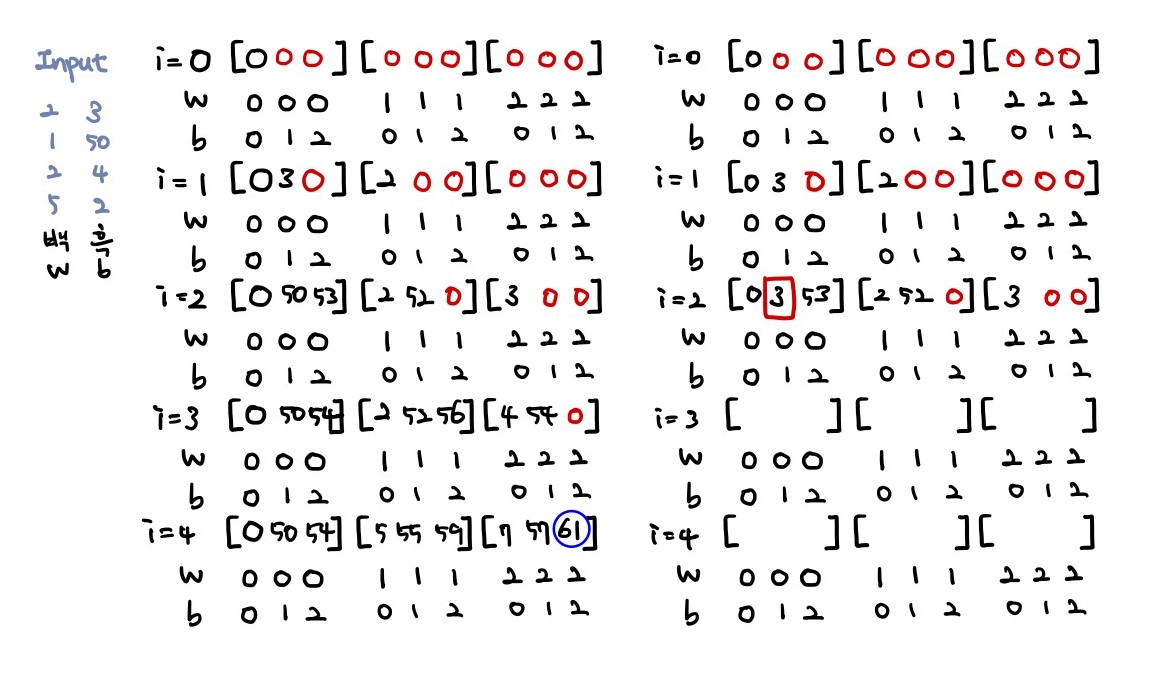 Input
2 3
1 50
2 4
5 2
백 흑
w b
i=0 [0 0 0] [0 0 0] [0 0 0]
w 0 0 0 1 1 1 2 2 2
b 0 1 2 0 1 2 0 1 2
i=1 [0 3 0] [2 0 0] [0 0 0]
w 0 0 0 1 1 1 2 2 2
b 0 1 2 0 1 2 0 1 2
i=2 [0 50 53] [2 52 0] [3 0 0]
w 0 0 0 1 1 1 2 2 2
b 0 1 2 0 1 2 0 1 2
i=3 [0 50 54] [2 52 56] [4 54 0]
w 0 0 0 1 1 1 2 2 2
b 0 1 2 0 1 2 0 1 2
i=4 [0 50 54] [5 55 59] [7 57 61]
w 0 0 0 1 1 1 2 2 2
b 0 1 2 0 1 2 0 1 2
i=0 [0 0 0] [0 0 0] [0 0 0]
w 0 0 0 1 1 1 2 2 2
b 0 1 2 0 1 2 0 1 2
i=1 [0 3 0] [2 0 0] [0 0 0]
w 0 0 0 1 1 1 2 2 2
b 0 1 2 0 1 2 0 1 2
i=2 [0 3 53] [2 52 0] [3 0 0]
w 0 0 0 1 1 1 2 2 2
b 0 1 2 0 1 2 0 1 2
i=3 [ ] [ ] [ ]
w 0 0 0 1 1 1 2 2 2
b 0 1 2 0 1 2 0 1 2
i=4 [ ] [ ] [ ]
w 0 0 0 1 1 1 2 2 2
b 0 1 2 0 1 2 0 1 2